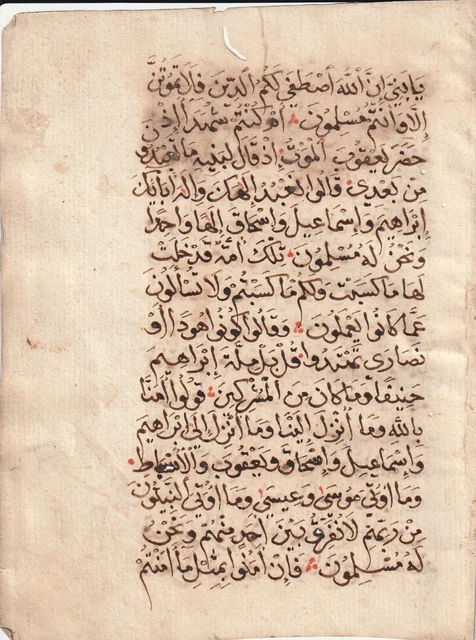 يا بني إن الله أصطفي لكم الدين فلا تموتن
إلا وانتم مسلمون أم كنتم شهدا إذ
حضر يعقوب الموت إذ قال لبنيه ما تعبدو
من بعدي قالوا نعبد إلهك وإله أبائك
إبراهيم وإسماعيل وإسحاق إلها واحدا
ونحن له مسلمون تلك أمة قد خلت
لها ما كسبت ولكم ما كسبتم ولا تسألون
عما كانوا يعملون وقالوا كونوا هودا أو
نصارى تهتدوا قل بل ملة إبراهيم
حنيفا وما كان من المشركين قولوا أمنا
بالله وما أنزل إلينا وما أنزل إلى إبراهيم
وإسماعيل وإسحاق ويعقوب والأسباط
وما اوتي موسى وعيسى وما أوتي النبيئون
من ربهم لا نفرق بين أحد منهم ونحن
له مسلمون فإن أمنوا بمثل ما أمنتم